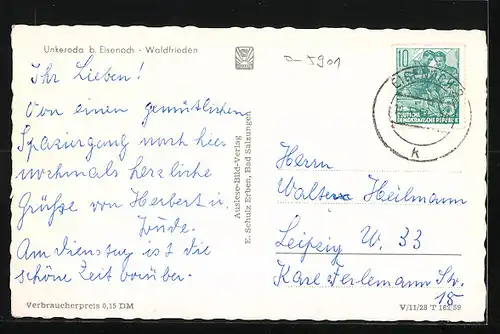 Unkeroda b. Eisenach - Waldfrieden
D-5901
Ihr Lieben!
Von einen gemütlichen
Spaziergang nach hier
nochmals herzliche
Grüße von Herbert u.
Am Dienstag ist die
schöne Zeit vorüber.
Verbraucherpreis 0,15 DM
Auslese-Bild-Verlag
E. Schulz Erben, Bad Salzungen
10
DEUTSCHE
DEMOKRATISCHE REPUBLIK
EISENACH
k
Herrn
Walter Heilmann
Leipzig W. 33
Karl Ferlemann Str.
18
V/11/28 T 162/59